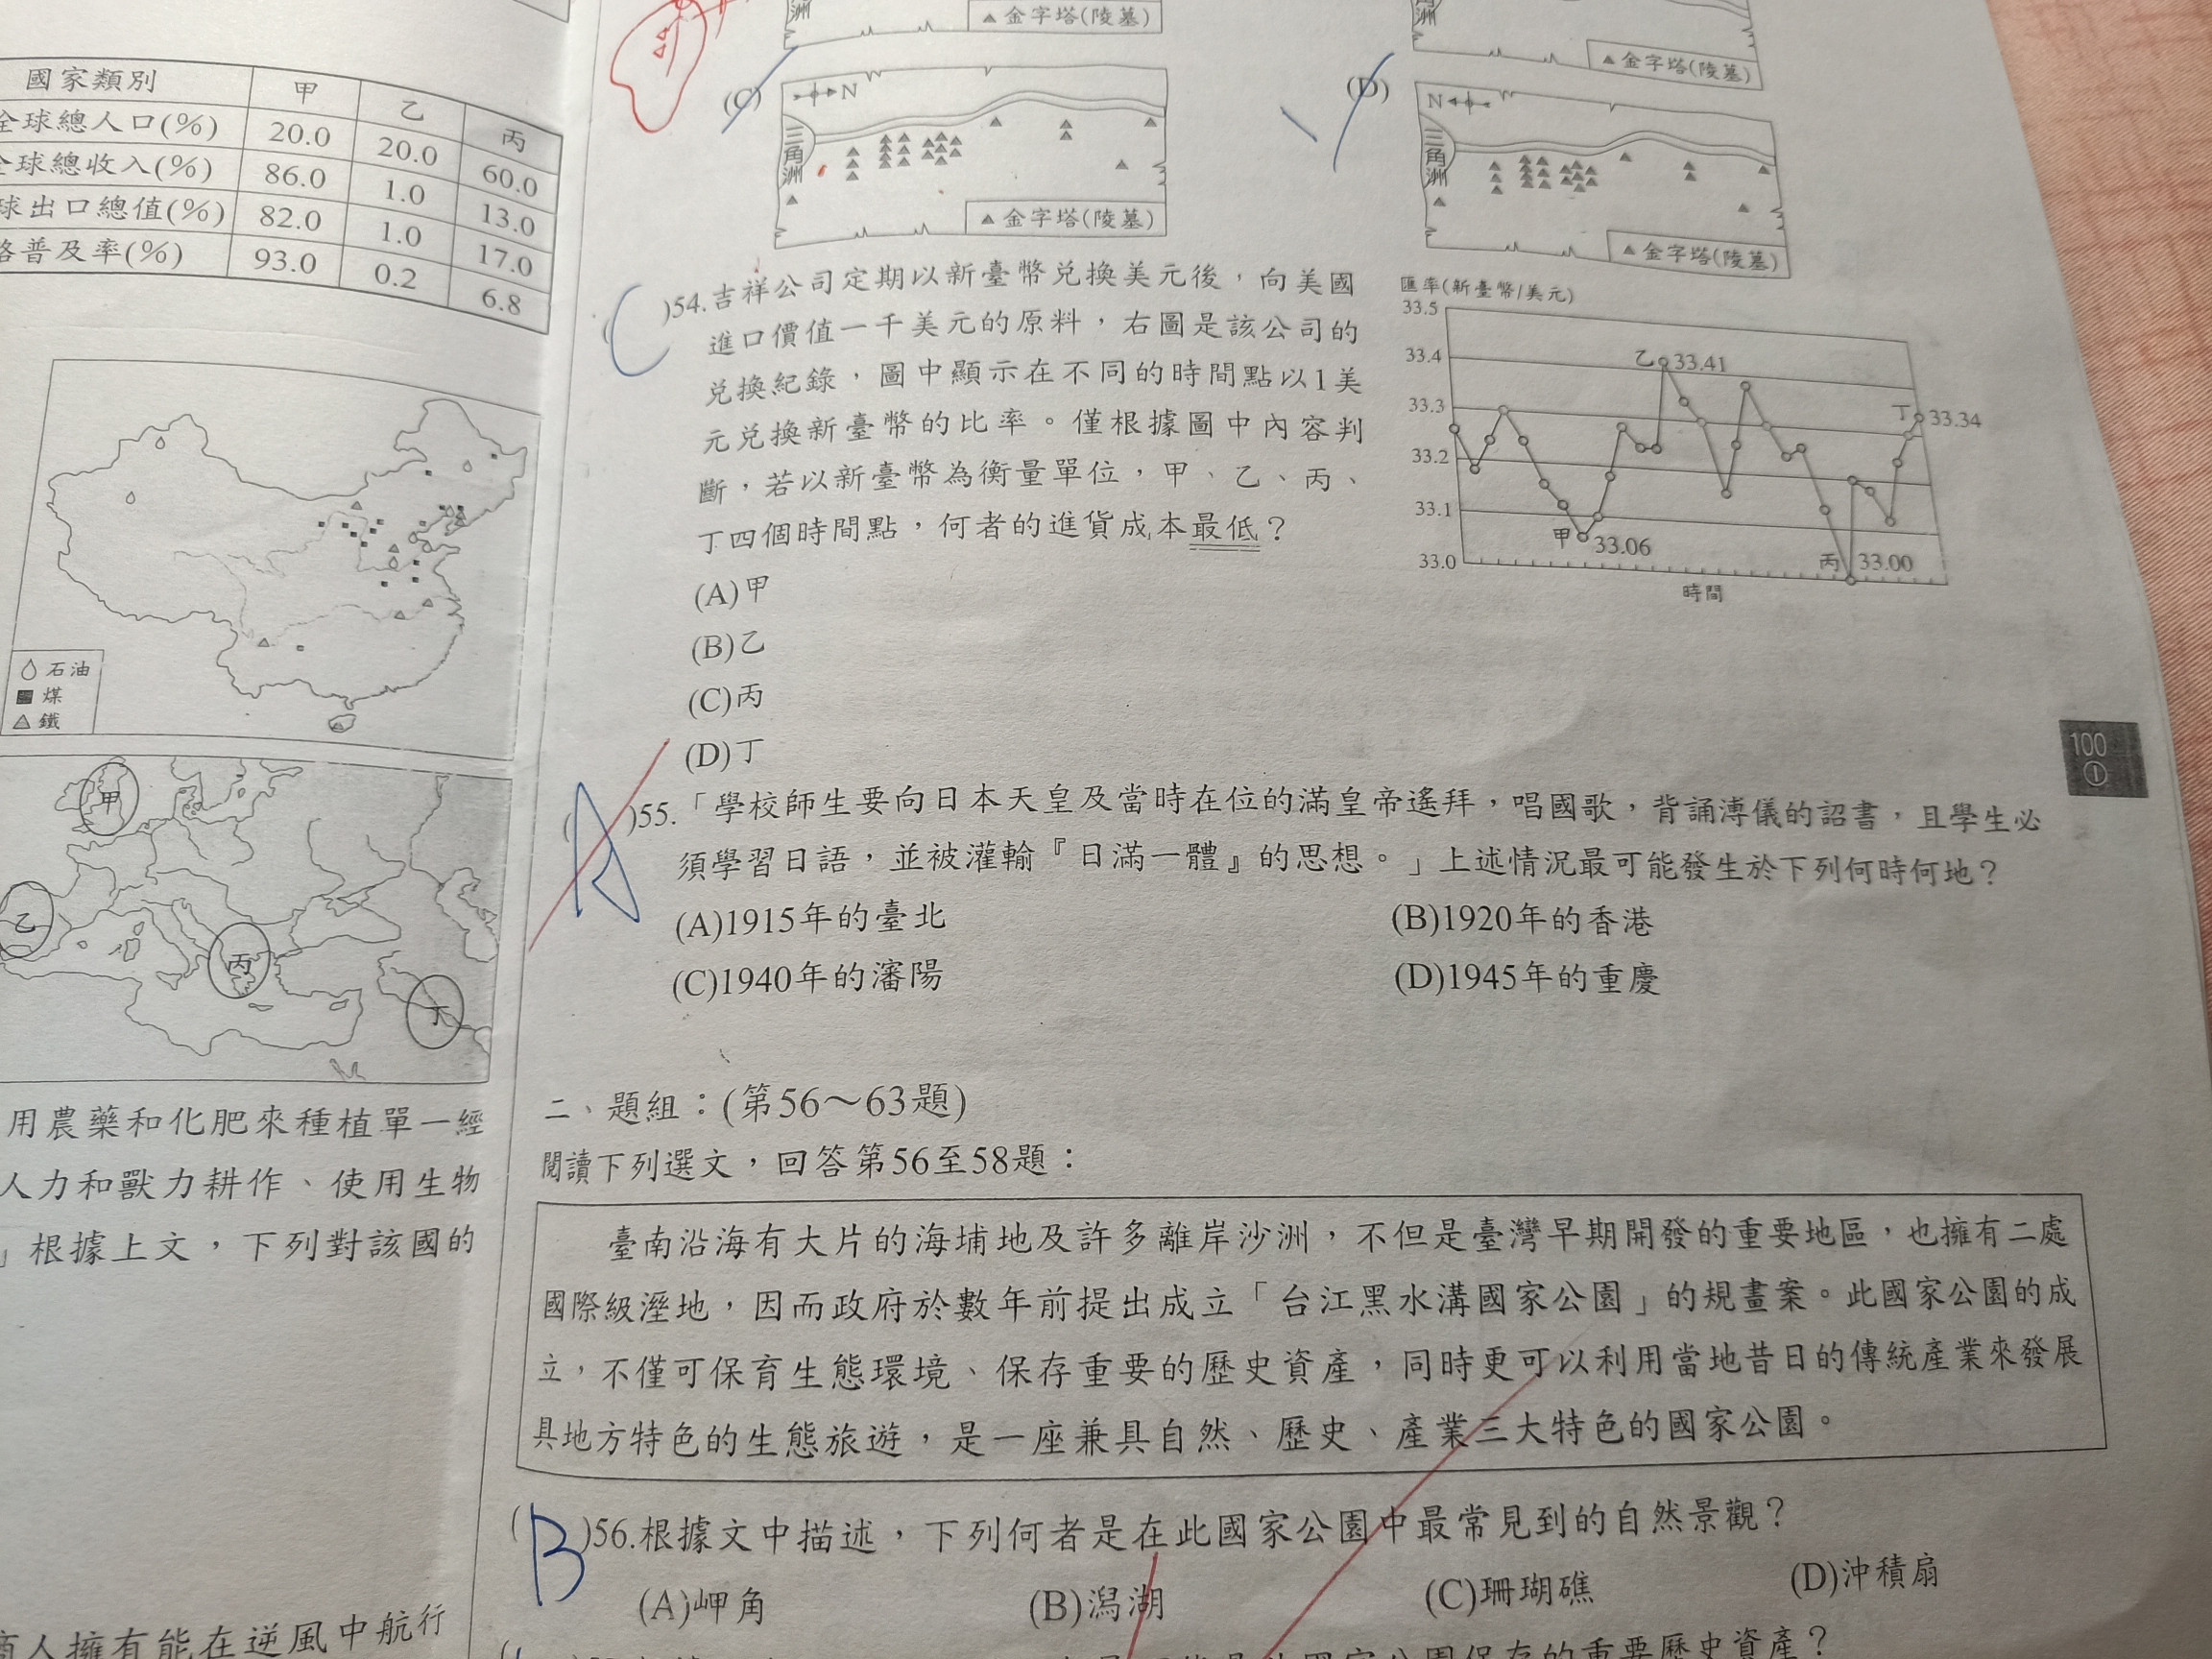 國家類別 甲 乙 丙
全球總人口(%) 20.0 20.0 60.0
全球總收入(%) 86.0 1.0 13.0
球出口總值(%) 82.0 1.0 17.0
普及率(%) 93.0 0.2 6.8
石油
煤
鐵
甲
乙
丙
丁
用農藥和化肥來種植單一經
人力和獸力耕作、使用生物
」根據上文,下列對該國的
商人擁有能在逆風中航行
洲
▲金字塔(陵墓)
洲
▲金字塔(陵墓)
(C)
N
三角洲
▲金字塔(陵墓)
(D)
N
三角洲
▲金字塔(陵墓)
( C )54.吉祥公司定期以新臺幣兌換美元後,向美國
進口價值一千美元的原料,右圖是該公司的
兌換紀錄,圖中顯示在不同的時間點以1美
元兌換新臺幣的比率。僅根據圖中內容判
斷,若以新臺幣為衡量單位,甲、乙、丙、
丁四個時間點,何者的進貨成本最低?
(A)甲
(B)乙
(C)丙
(D)丁
匯率(新臺幣/美元)
33.5
33.4
33.3
33.2
33.1
33.0
甲 33.06
乙 33.41
丙 33.00
丁 33.34
時間
( A )55.「學校師生要向日本天皇及當時在位的滿皇帝遙拜,唱國歌,背誦溥儀的詔書,且學生必
須學習日語,並被灌輸『日滿一體』的思想。」上述情況最可能發生於下列何時何地?
(A)1915年的臺北 (B)1920年的香港
(C)1940年的瀋陽 (D)1945年的重慶
100
①
二、題組:(第56~63題)
閱讀下列選文,回答第56至58題:
臺南沿海有大片的海埔地及許多離岸沙洲,不但是臺灣早期開發的重要地區,也擁有二處
國際級溼地,因而政府於數年前提出成立「台江黑水溝國家公園」的規畫案。此國家公園的成
立,不僅可保育生態環境、保存重要的歷史資產,同時更可以利用當地昔日的傳統產業來發展
具地方特色的生態旅遊,是一座兼具自然、歷史、產業三大特色的國家公園。
( B )56.根據文中描述,下列何者是在此國家公園中最常見到的自然景觀?
(A)岬角 (B)潟湖 (C)珊瑚礁 (D)沖積扇
國家公園保存的重要歷史資產?